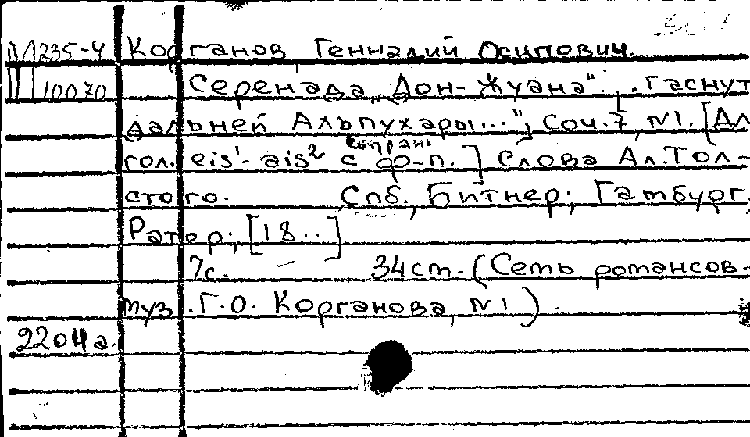 М 235-4 Корганов, Геннадий Осипович.
III 10070 Серенада „Дон-Жуана". „Гаснут
дальней Альпухары...", Соч. 7, №1. [Дл
сопрано
гол. eis¹- ais² с ф-п.] Слова Ал. Тол-
стого. Спб, Битнер; Гамбург,
Ратер; [18..]
7с. 34 cm. (Семь романсов.
муз. Г.О. Корганова, №1).
2204а.